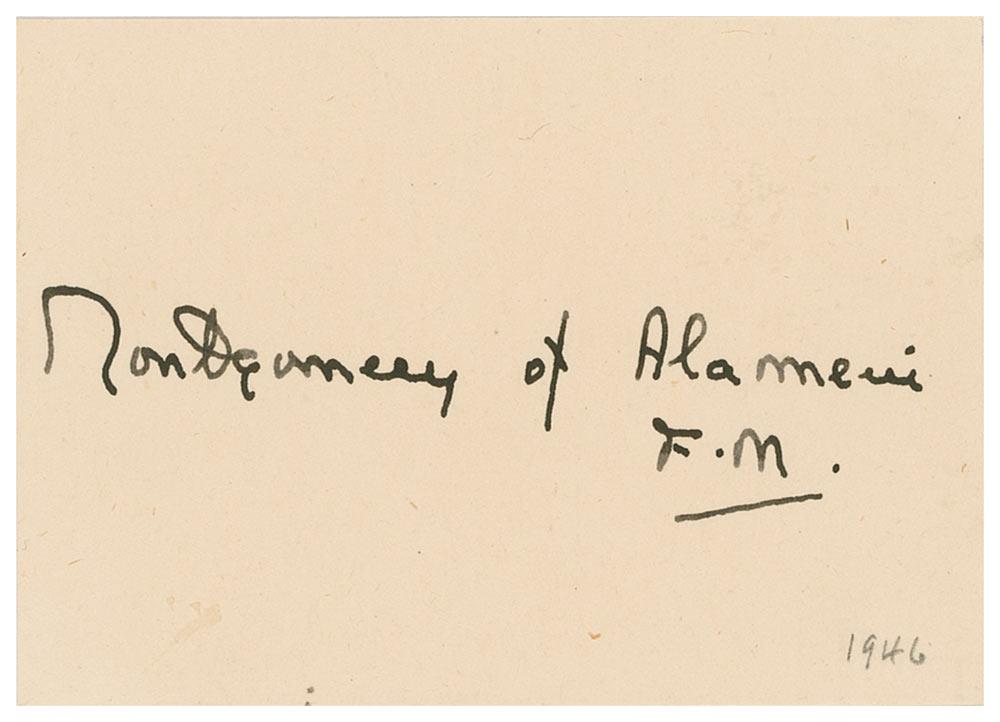 Montgomery of Alamein
F.M.
1946